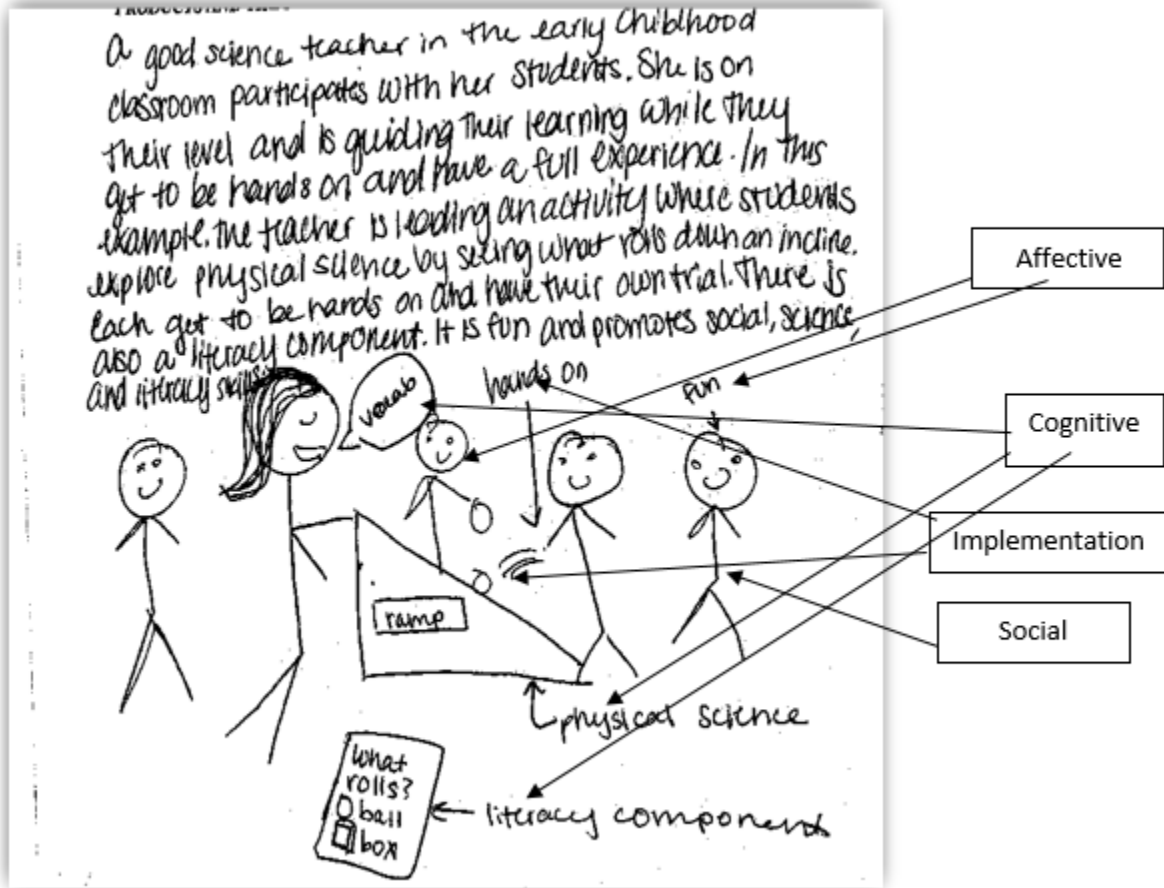 A good science teacher in the early childhood
classroom participates with her students. She is on
their level and is guiding their learning while they
get to be hands on and have a full experience. In this
example. the teacher is leading an activity where students
explore physical science by seeing what rolls down an incline.
Each get to be hands on and have their own trial. There is
also a literacy component. It is fun and promotes social, science,
and literacy skills.
vocab
hands on
fun
ramp
physical science
What
rolls?
ball
box
literacy component
Affective
Cognitive
Implementation
Social